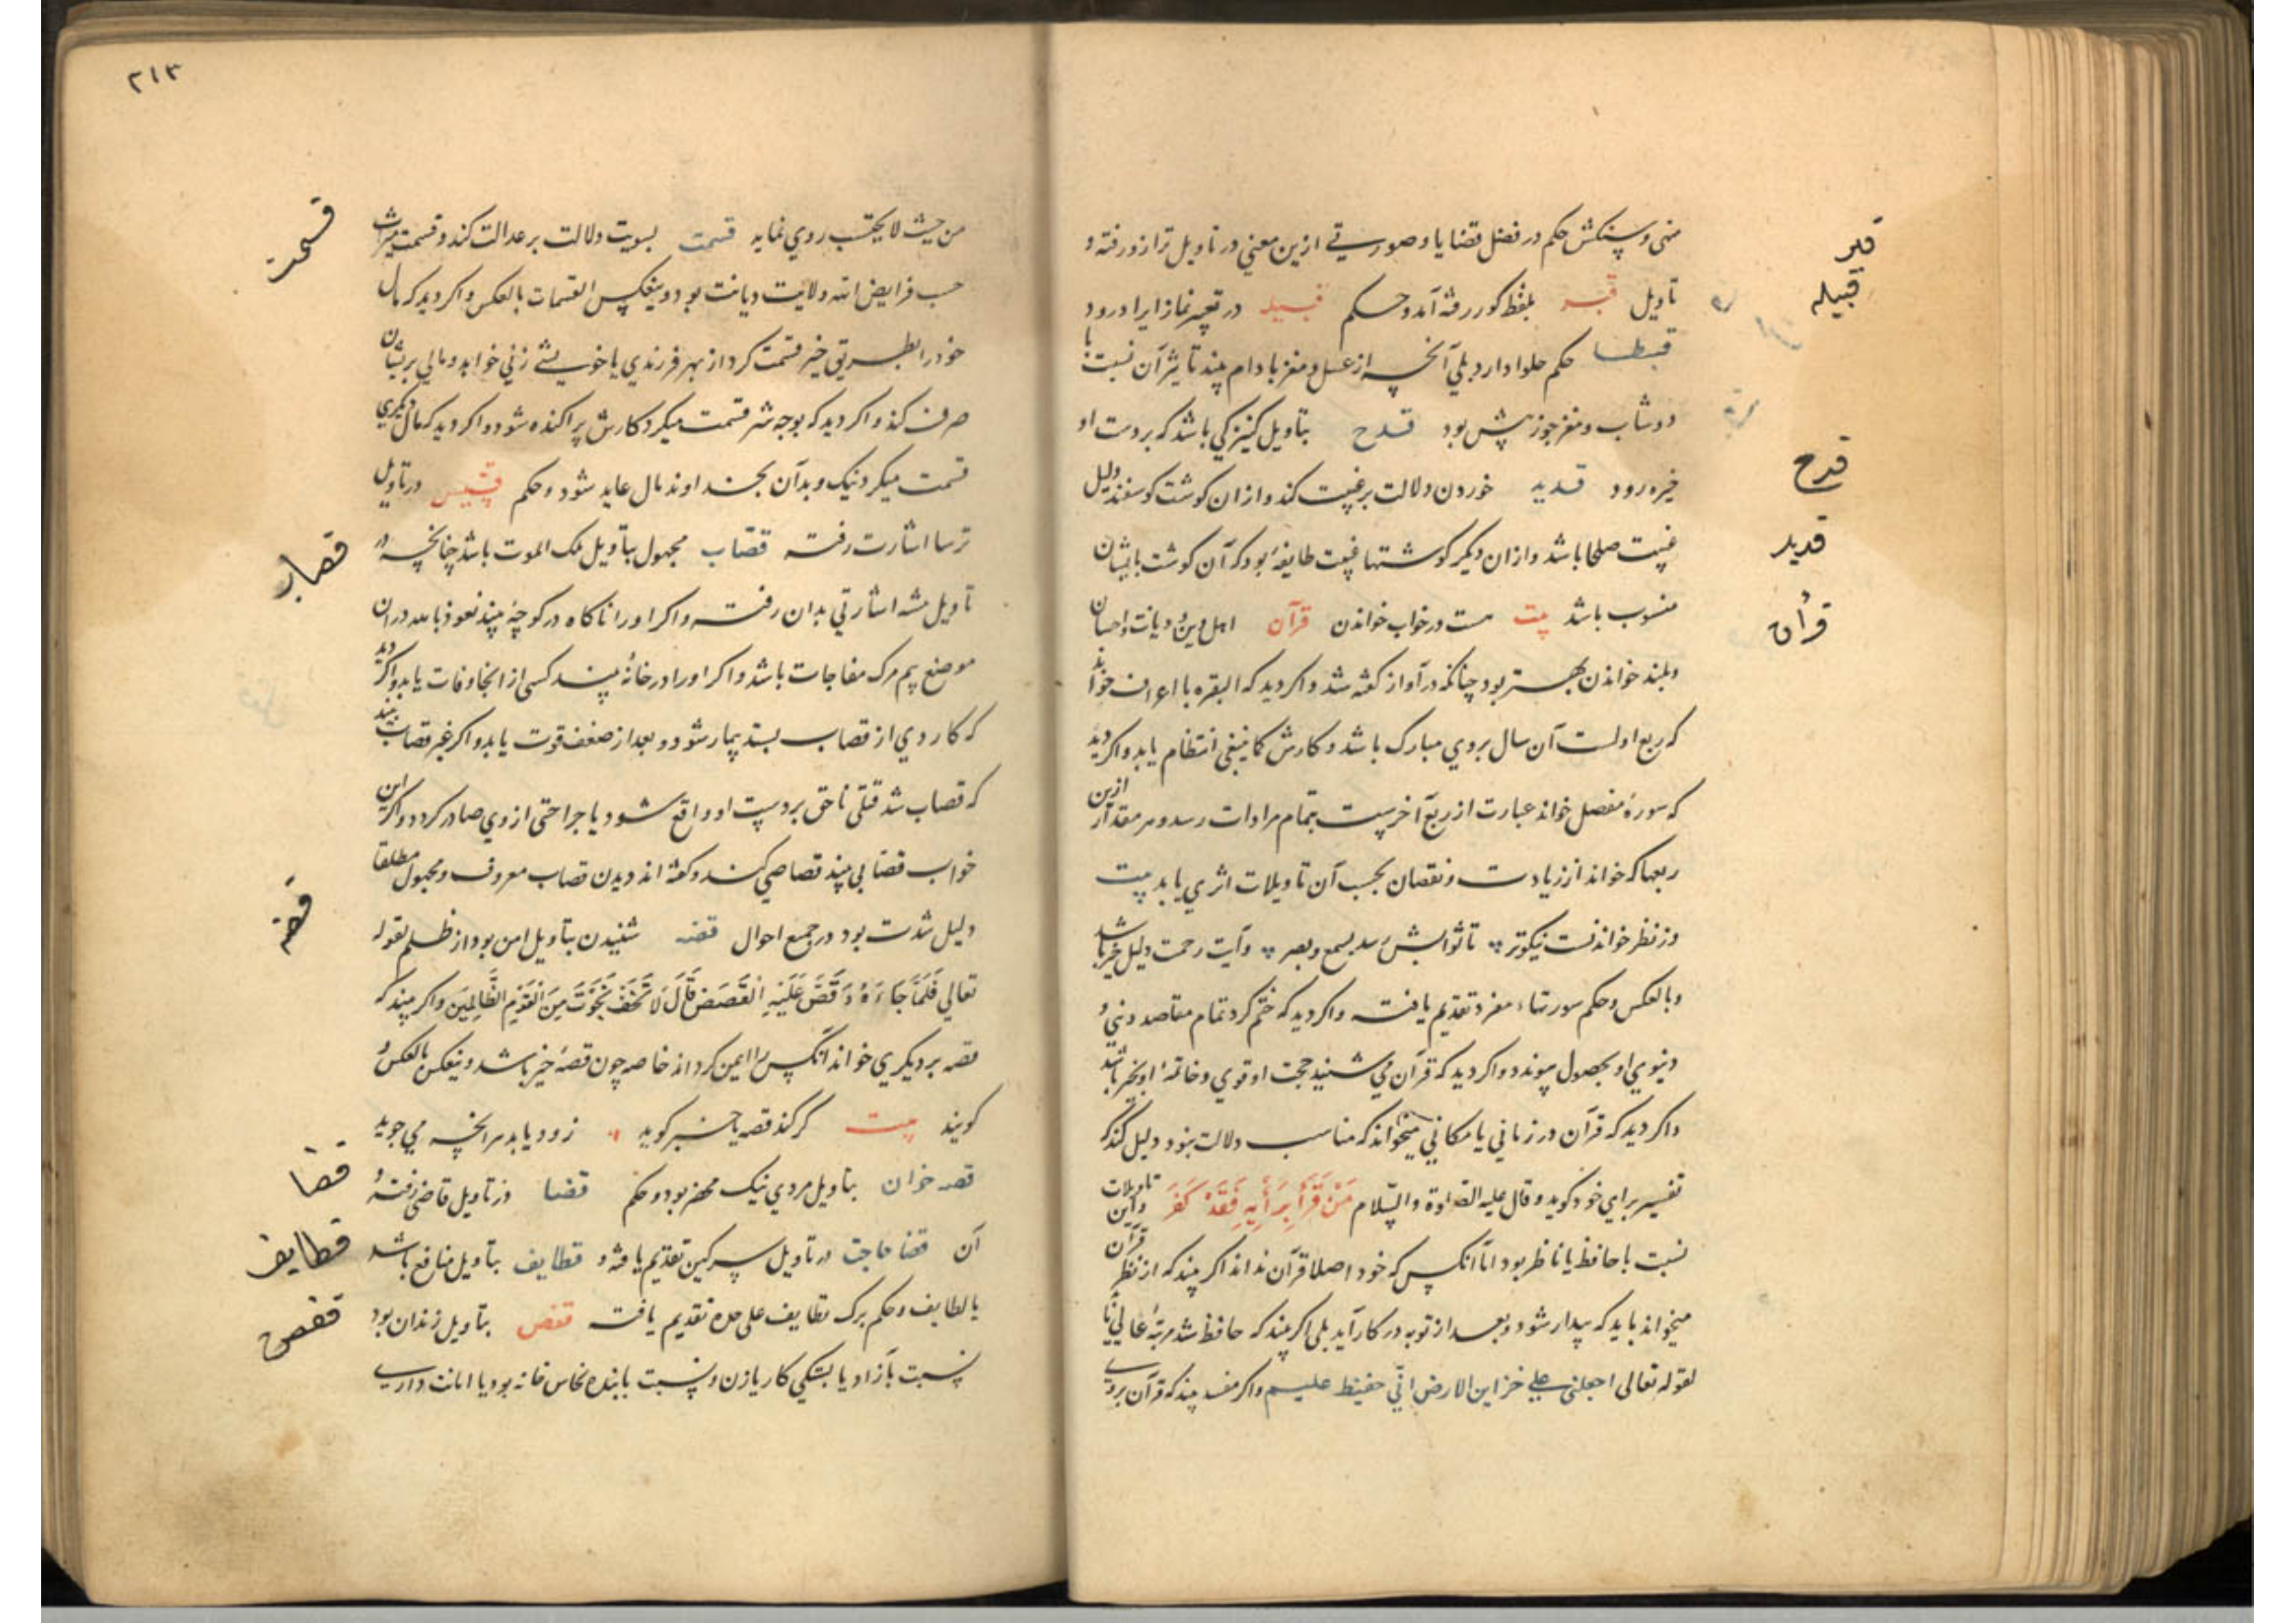 قبر
قبیله
قدح
قدید
قرآن
حکم در فصل قضایا و صورتی ازین معنی در تاویل ترازو رفته و
تاویل قبر بلفظ کور رفته آمد و حکم قبیله در تعبیر نماز ایراد رود
حکم حلوا دارد بلی آنچه از عسل و مغز بادام بیند تاثیر آن نسبت با
دوشاب و مغز جوز بیش بود قدح بتاویل کنیزکی باشد که بر دست او
خیره رود قدید خوردن دلالت بر غیبت کند و از ان کوشت کوسفند دلیل
غیبت صلحا باشد و از ان دیکر کوشتها غیبت طایفهٔ بود که آن کوشت بایشان
منسوب باشد در خواب خواندن قرآن اهل دین و دیانت و احسان
و بلند خواندن بهتر بود چنانکه در آواز کفته شد و اکر دید که البقره یا اعراف خواند
که ربع اولست آن سال بروی مبارک باشد و کارش کما ینبغی انتظام یابد و اکر دید
که سورهٔ مفصل خواند عبارت از ربع آخرست بتمام مرادات رسد و هر مقدار ازین
ربعها که خواند از زیادت و نقصان بحسب آن تاویلات اثری یابد بیت
وز نظر خواندنست نیکوتر تا ثوابش رسد بسمع و بصر و آیت رحمت دلیل خیر باشد
و بالعکس و حکم سورتهاء مفرد تقدیم یافته و اکر دید که ختم کرد تمام مقاصد دینی و
دنیوی او بحصول پیوندد و اکر دید که قرآن می شنید حجت او قوی و خاتمهٔ او بخیر باشد
و اکر دید که قرآن در زمانی یا مکانی میخواند که مناسب دلالت نبود دلیل کند که
تفسیر برای خود کوید و قال علیه الصلوة والسلام مَنْ قَرَأَ بِرَأْیِهِ فَقَدْ كَفَرَ و این تاویلات
نسبت با حافظ یا ناظر بود اما آنکس که خود اصلا قرآن نداند اکر بیند که از نظر قرآن
میخواند باید که بیدار شود و بعد از توبه در کار آید بلی اکر بیند که حافظ شد مرتبهٔ عالی یابد
لقوله تعالی اجعلنی علی خزاین الارض انی حفیظ علیم و اکر مفسد بیند که قرآن بر
۲۱۳
قسمت
قصاب
قصه
قضا
قطایف
قفص
من حیث لا یحتسب روی نماید قسمت بسویت دلالت بر عدالت کند و قسمت میراث
حسب فرایض الله ولایت دیانت بود و بعکس القسمات بالعکس و اکر دید که مال
خود را بطریق خیر قسمت کرد از بهر فرزندی یا خویشی زنی خواهد و مالی بریشان
صرف کند و اکر دید که بوجه شر قسمت میکرد کارش پراکنده شود و اکر دید که مال دیکری
قسمت میکرد نیک و بد آن بخداوند مال عاید شود و حکم قسیس در تاویل
ترسا اشارت رفته قصّاب مجهول بتاویل ملک الموت باشد چنانچه در
تاویل اشارتی بدان رفته و اکر او را ناکاه در کوچهٔ بیند نعوذ بالله در ان
موضع بیم مرک مفاجات باشد و اکر او را در خانهٔ بیند کسی از انجا وفات یابد و اکر دید
که کاردی از قصاب بستد بیمار شود و بعد از ضعف قوت یابد و اکر غیر قصاب بیند
که قصاب شد قتلی ناحق بر دست او واقع شود یا جراحتی از وی صادر کردد و اکر این
خواب قصابی بیند قصاصی کند و کفته اند دیدن قصاب معروف و مجهول مطلقا
دلیل شدت بود در جمیع احوال قصه شنیدن بتاویل امن بود از ظلم لقوله
تعالی فَلَمَّا جَاءَهُ وَقَصَّ عَلَیْهِ الْقَصَصَ قَالَ لَا تَخَفْ نَجَوْتَ مِنَ الْقَوْمِ الظَّالِمِینَ و اکر بیند که
قصه بر دیکری خواند آنکس را ایمن کرداند خاصه چون قصهٔ خیر باشد و بعکس بالعکس و
کویند بیت کر کند قصه یا خبر کوید زود یابد هر انچه می جوید
قصه خوان بتاویل مردی نیک محضر بود و حکم قضا در تاویل قاضی رفته و
آن قضا حاجت در تاویل سرکین تقدیم یافته و قطایف بتاویل منافع باشد
یا لطایف و حکم برک قطایف علی حده تقدیم یافت قفص بتاویل زندان بود
نسبت بازاد یا بستکی کار یا زن و نسبت با بنده نخاس خانه بود یا امانت داری